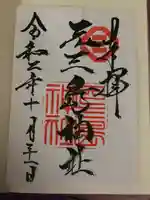 奉拝
元三島神社
令和二年十月 日